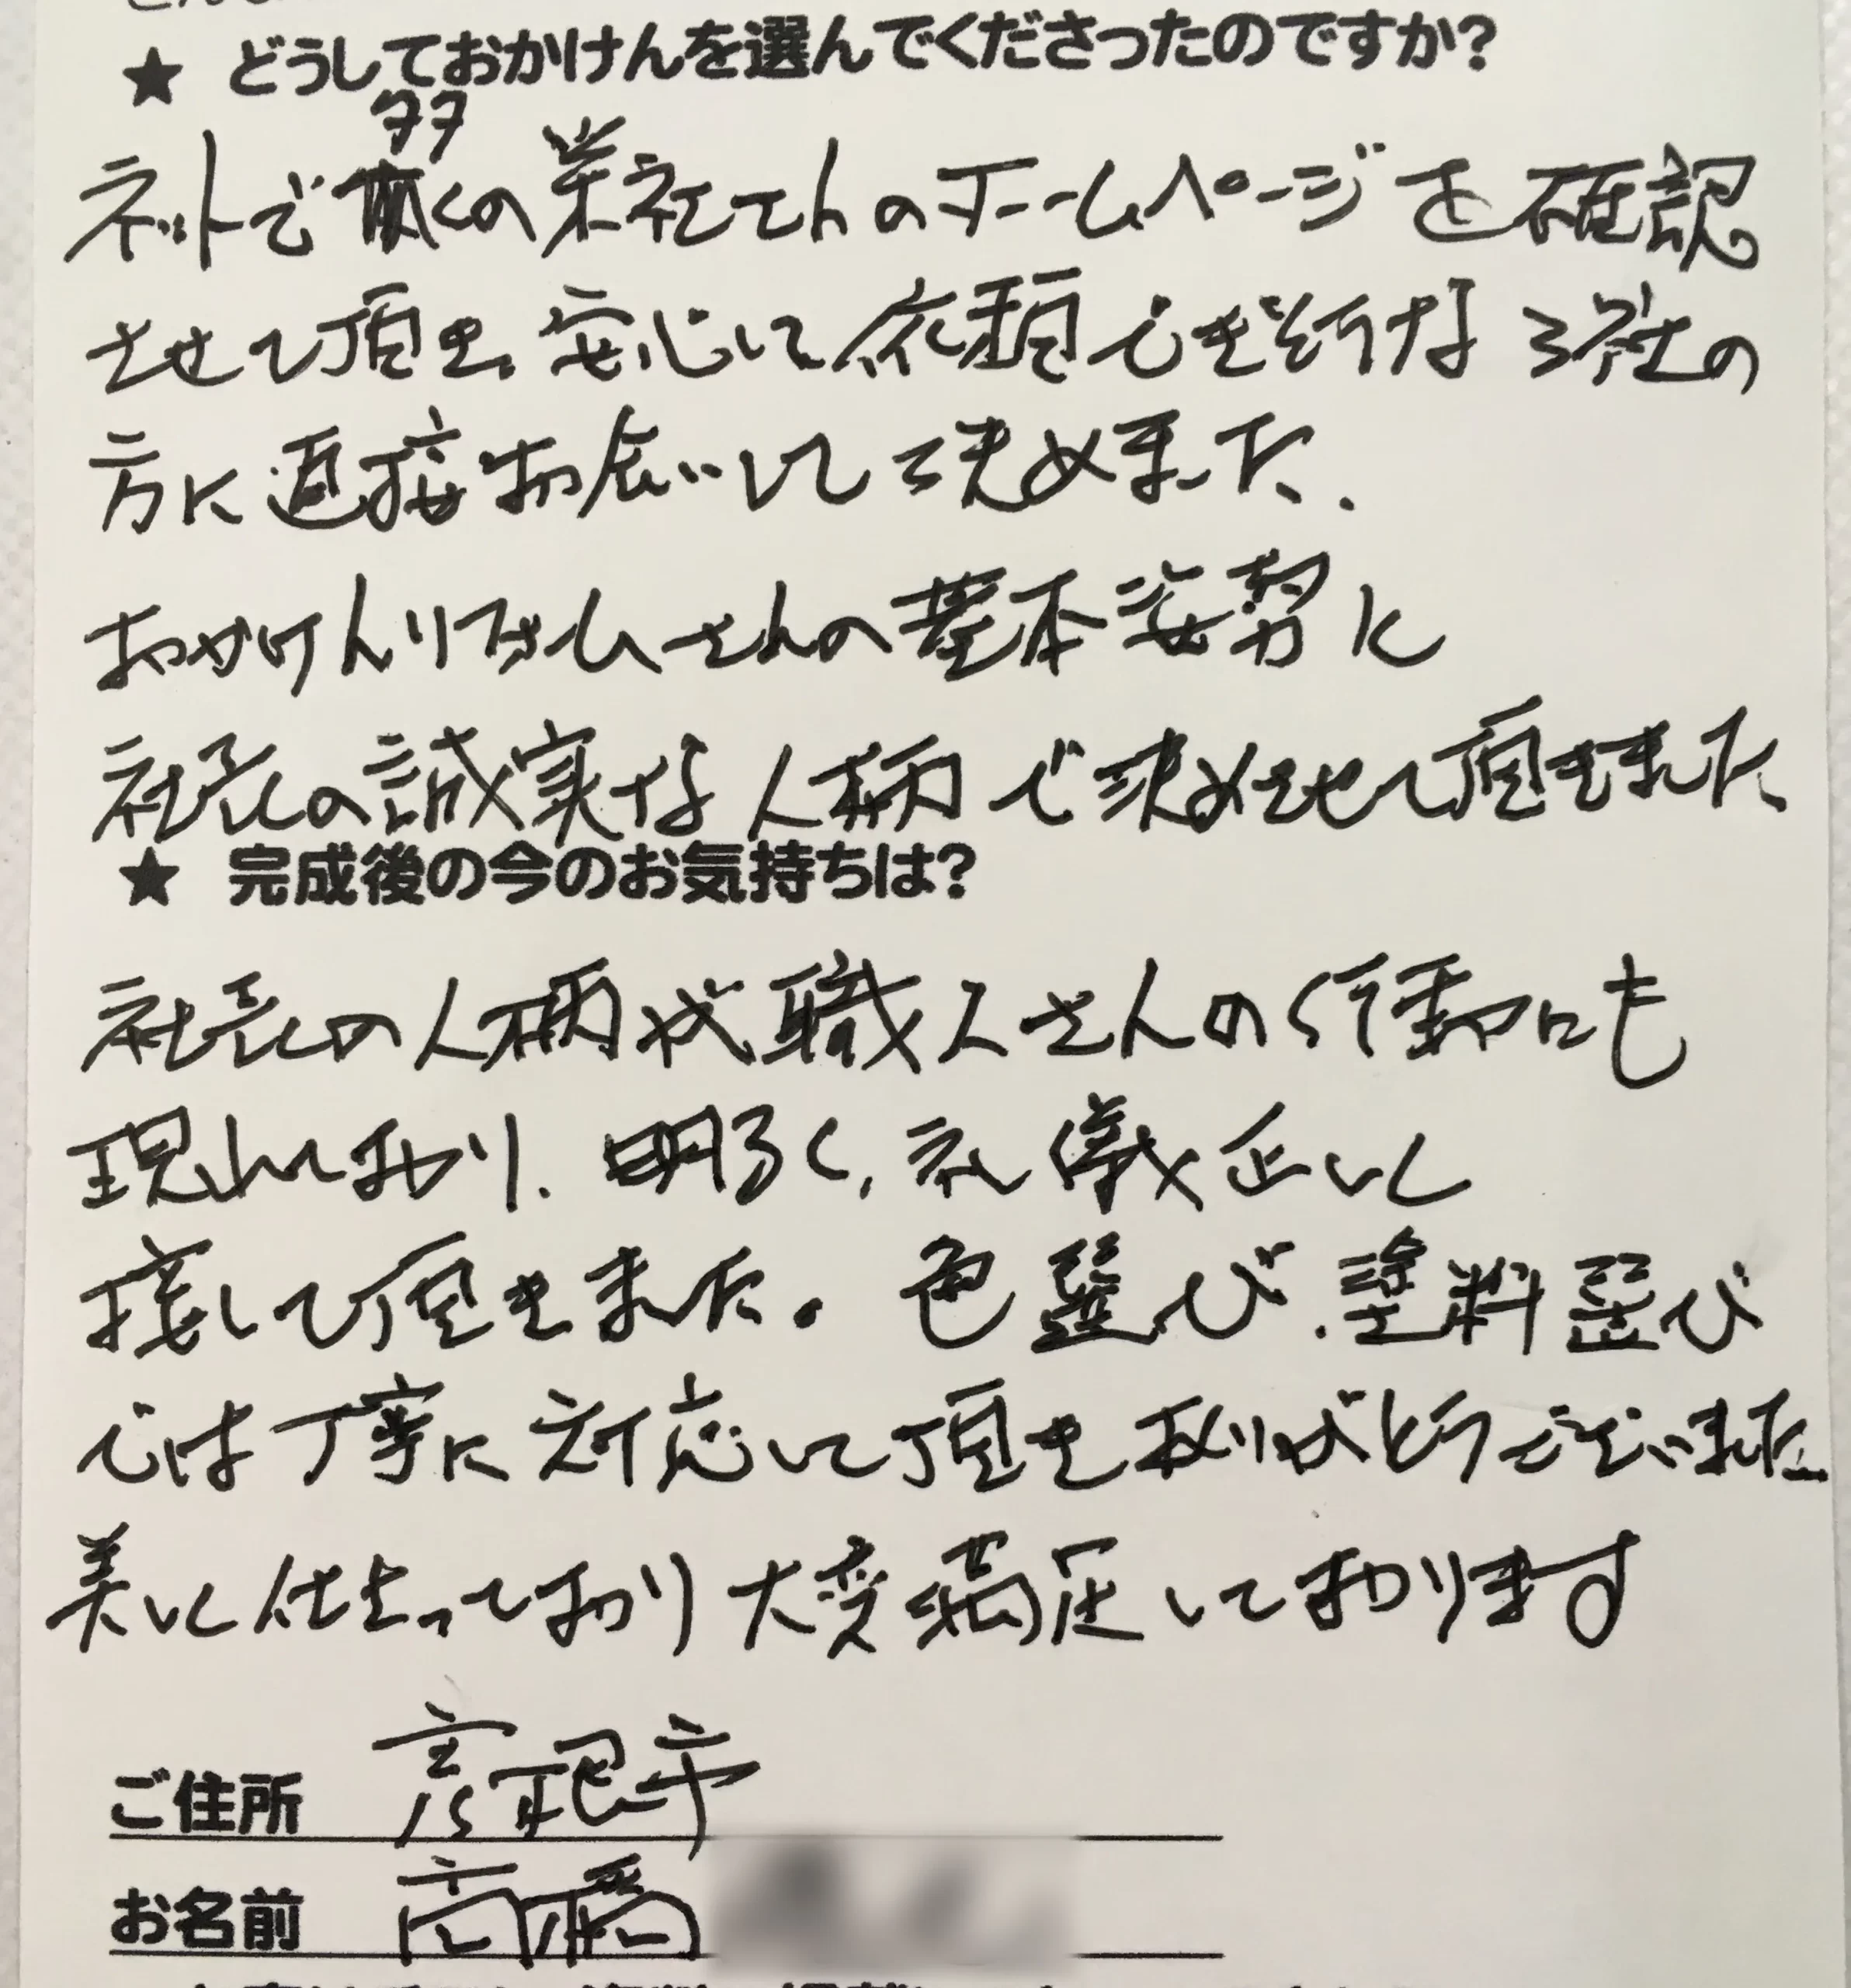 ★ どうしておかけんを選んでくださったのですか?
ネットで多くの業社さんのホームページを確認
させて頂き、安心して依頼できそうな3社の
方に直接お願いして決めました.
おかけんリフォームさんの基本姿勢に
社長の誠実な人柄で決めさせて頂きました
★ 完成後の今のお気持ちは?
社長の人柄が職人さんの行動にも
現れており、明るく、礼儀正しく
接して頂きました。色選び、塗料選び
では丁寧に対応して頂きありがとうございました
美しく仕上っており大変満足しております
ご住所 彦根市
お名前 高橋